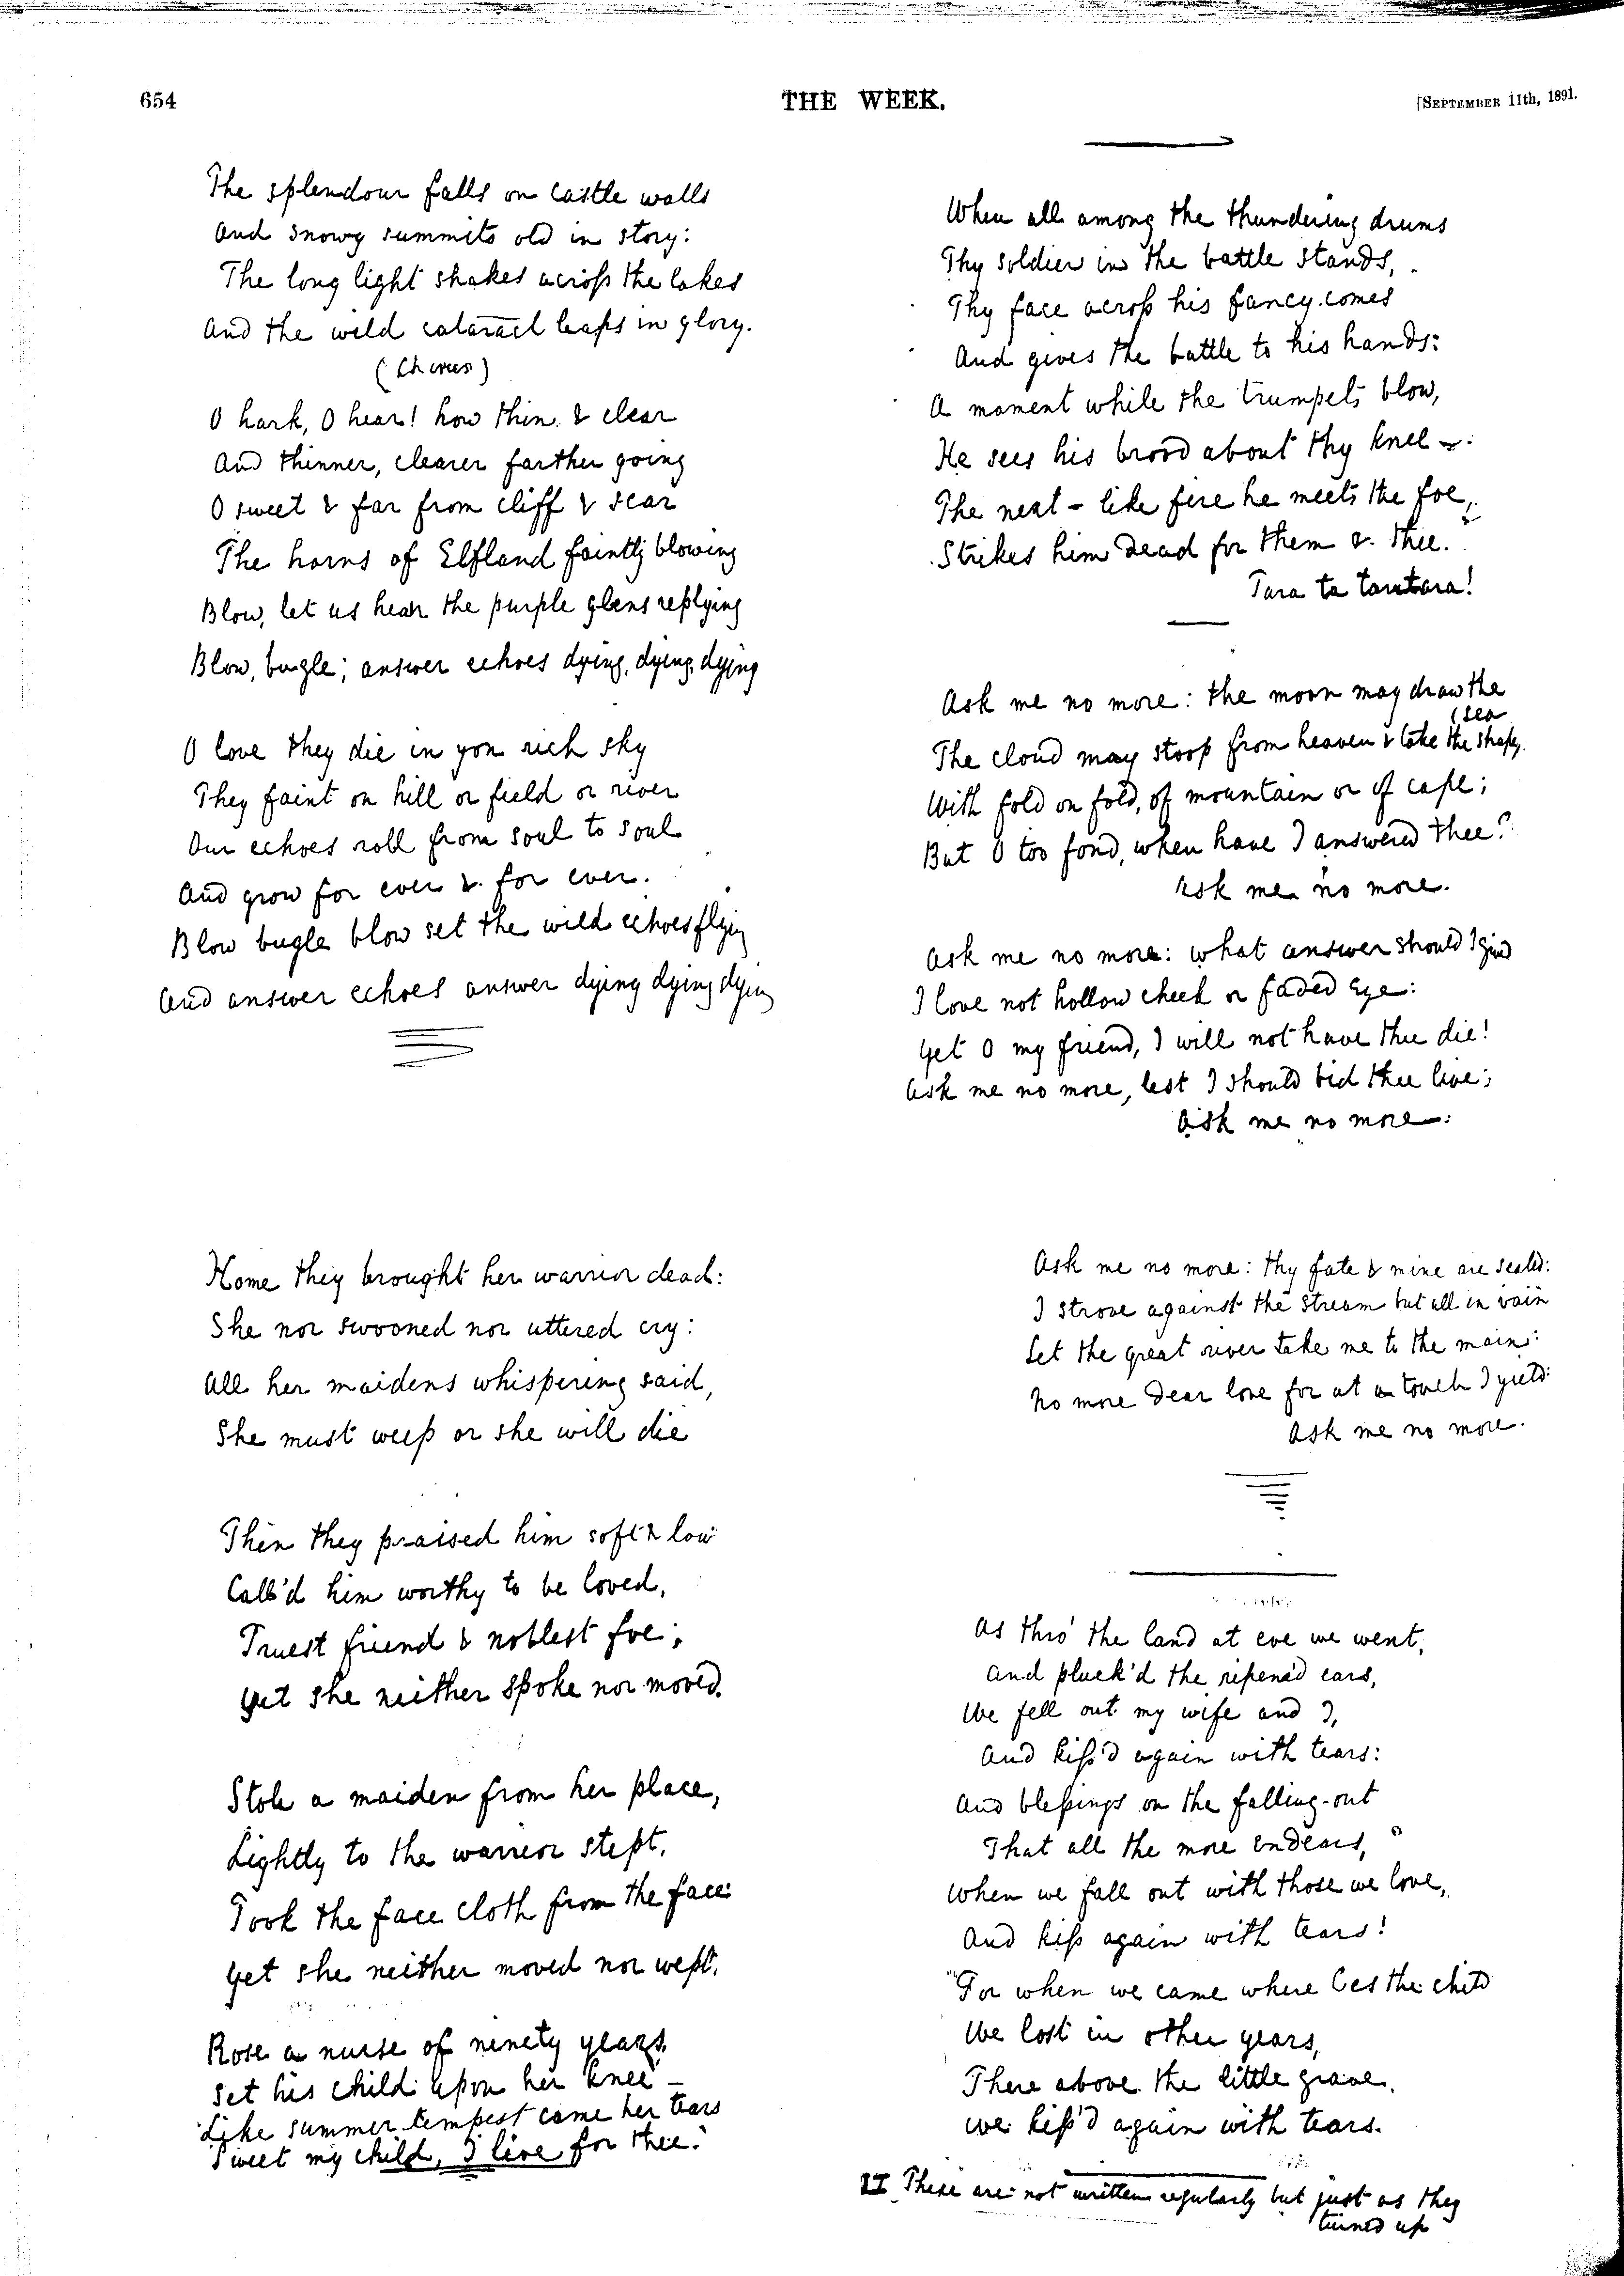 654
THE WEEK.
[SEPTEMBER 11th, 1891.
The splendour falls on castle walls
And snowy summits old in story:
The long light shakes across the lakes
And the wild cataract leaps in glory.
(Chorus)
O hark, O hear! how thin & clear
And thinner, clearer farther going
O sweet & far from cliff & scar
The horns of Elfland faintly blowing
Blow, let us hear the purple glens replying
Blow, bugle; answer echoes dying, dying, dying
O love they die in yon rich sky
They faint on hill or field or river
Our echoes roll from soul to soul
And grow for ever & for ever.
Blow bugle blow set the wild echoes flying
And answer echoes answer dying dying dying
Home they brought her warrior dead:
She nor swooned nor uttered cry:
All her maidens whispering said,
She must weep or she will die
Then they praised him soft & low
Call'd him worthy to be loved,
Truest friend & noblest foe;
Yet she neither spoke nor moved.
Stole a maiden from her place,
Lightly to the warrior stept,
Took the face cloth from the face:
Yet she neither moved nor wept.
Rose a nurse of ninety years,
Set his child upon her knee –
Like summer tempest came her tears
Sweet my child, I live for thee.
When all among the thundering drums
Thy soldier in the battle stands,
Thy face across his fancy comes
And gives the battle to his hands:
A moment while the trumpets blow,
He sees his brood about thy knee –:
The next – like fire he meets the foe,
Strikes him dead for them & thee.
Tara ta tantara!
Ask me no more: the moon may draw the
(sea
The cloud may stoop from heaven & take the shape,
With fold on fold, of mountain or of cape;
But O too fond, when have I answered thee?
Ask me no more.
Ask me no more: what answer should I give
I love not hollow cheek or faded eye:
Yet O my friend, I will not have thee die!
Ask me no more, lest I should bid thee live;
Ask me no more:
Ask me no more: thy fate & mine are sealed:
I strove against the stream but all in vain
Let the great river take me to the main:
No more dear love for at a touch I yield:
Ask me no more.
As thro' the land at eve we went,
And pluck'd the ripen'd ears,
We fell out my wife and I,
And kiss'd again with tears:
And blessings on the falling-out
That all the more endears,
When we fall out with those we love,
And kiss again with tears!
For when we came where lies the child
We lost in other years,
There above the little grave,
We kiss'd again with tears.
These are not written regularly but just as they
turned up